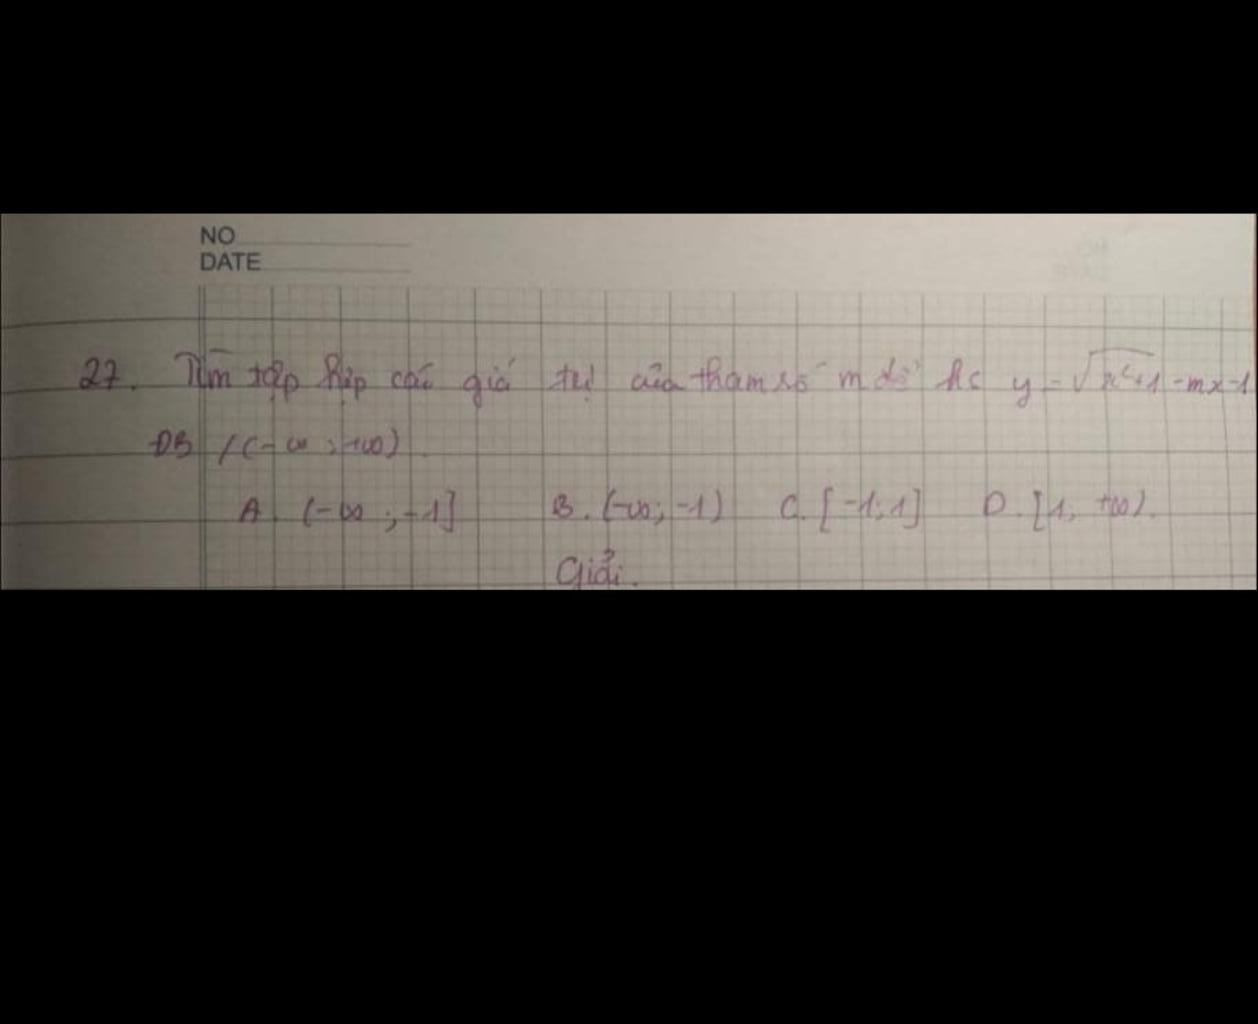 NO
DATE
27. Tìm tập hợp các giá trị của tham số m để hs y = √x²+1 - mx - 1
ĐB /(-∞; +∞)
A. (-∞; -1] B. (-∞; -1) C. [-1; 1] D. [1; +∞).
Giải.